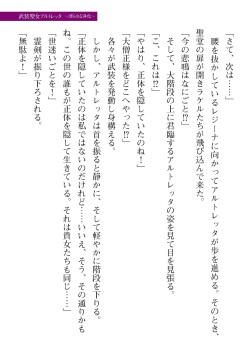 武装聖女アルトレッタ
「さて、次は……」
腰を抜かしているレジーナに向かってアルトレッタが歩を進める。そのとき、
聖堂の扉が開きラケルたちが飛び込んで来た。
「今の悲鳴はなにごと!?」
そして、大階段の上に君臨するアルトレッタの姿を見て目を見張る。
「こ、これは!?」
「やはり、正体を隠していたのね！」
「大僧正様をどこへやった!?」
各々が武装を発動し身構える。
しかし、アルトレッタは首を振ると静かに、そして軽やかに階段を下りる。
「正体を隠していたのは私ではないのだけれど……いいえ、そう、その通りかも
ね。この世の誰もが正体を隠して生きている。それは貴女たちも同じ……」
「世迷いごとを！」
霊剣が振り下ろされる。
「無駄よ！」